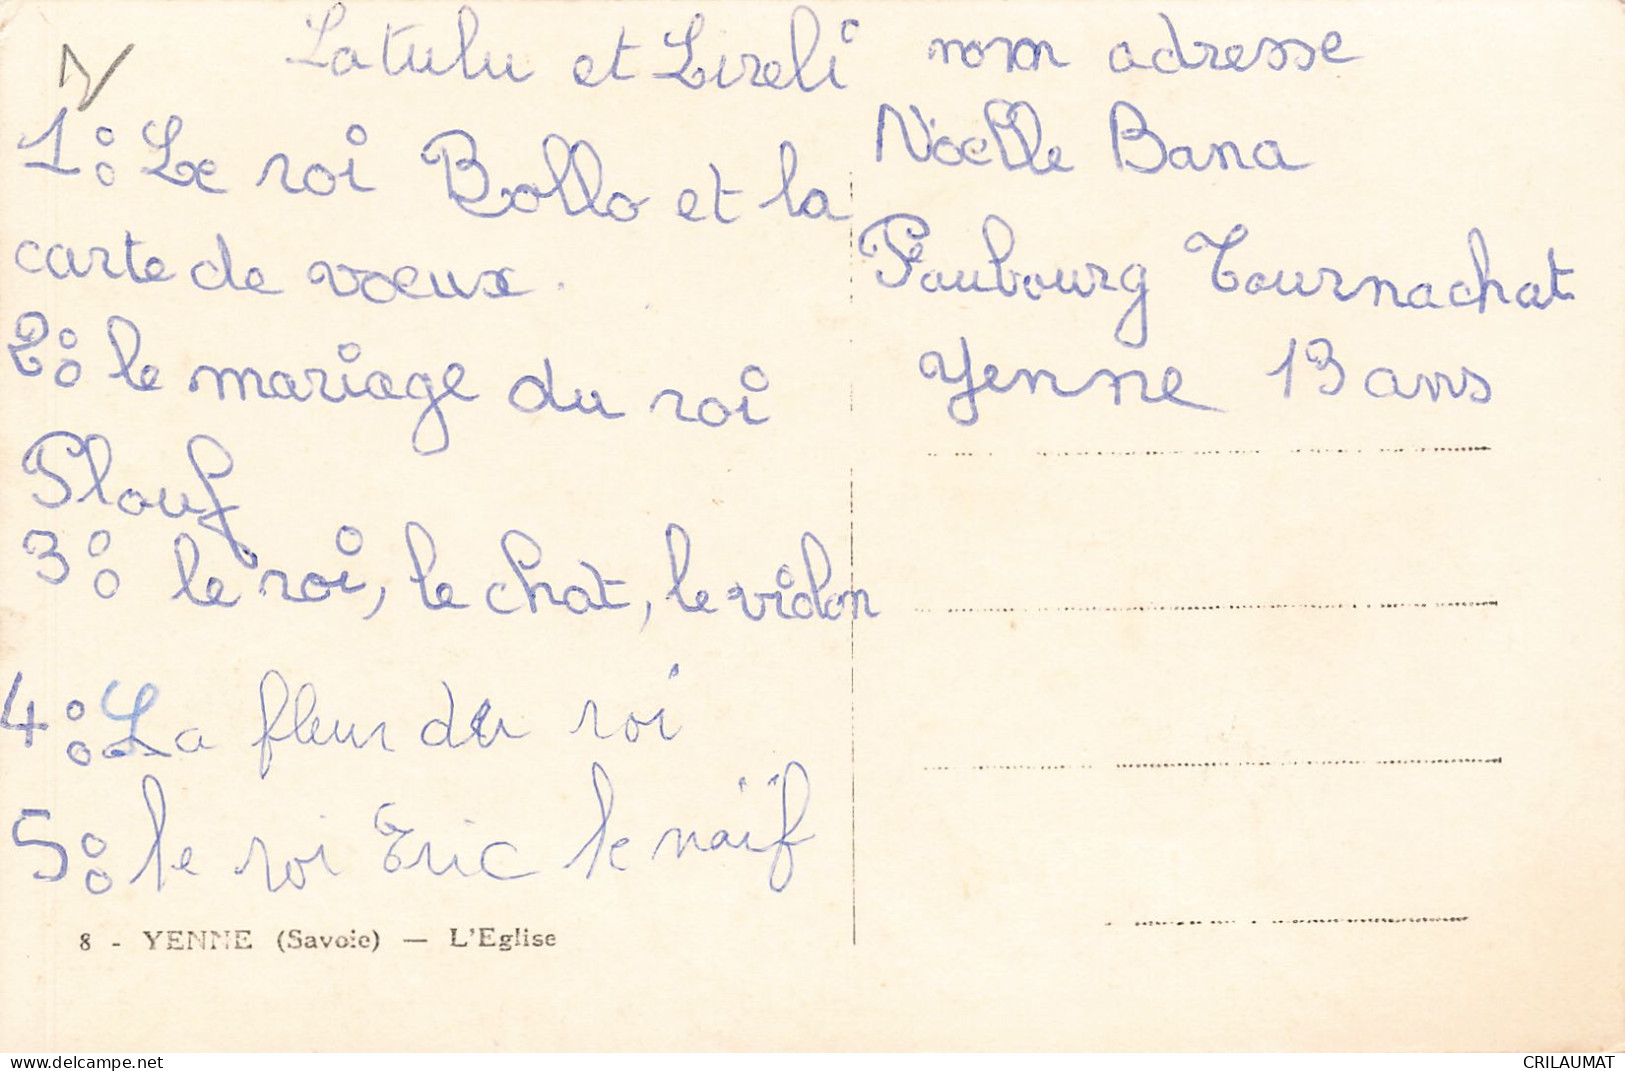 Latulu et Lireli
1: Le roi Bollo et la
carte de voeux.
2: le mariage du roi
Plouf
3: le roi, le chat, le violon
4: La fleur du roi
5: le roi Eric le naïf
8 - YENNE (Savoie) — L'Eglise
nom adresse
Noëlle Bana
Faubourg Tournachat
Yenne 13 ans
delcampe.net
CRILAUMAT